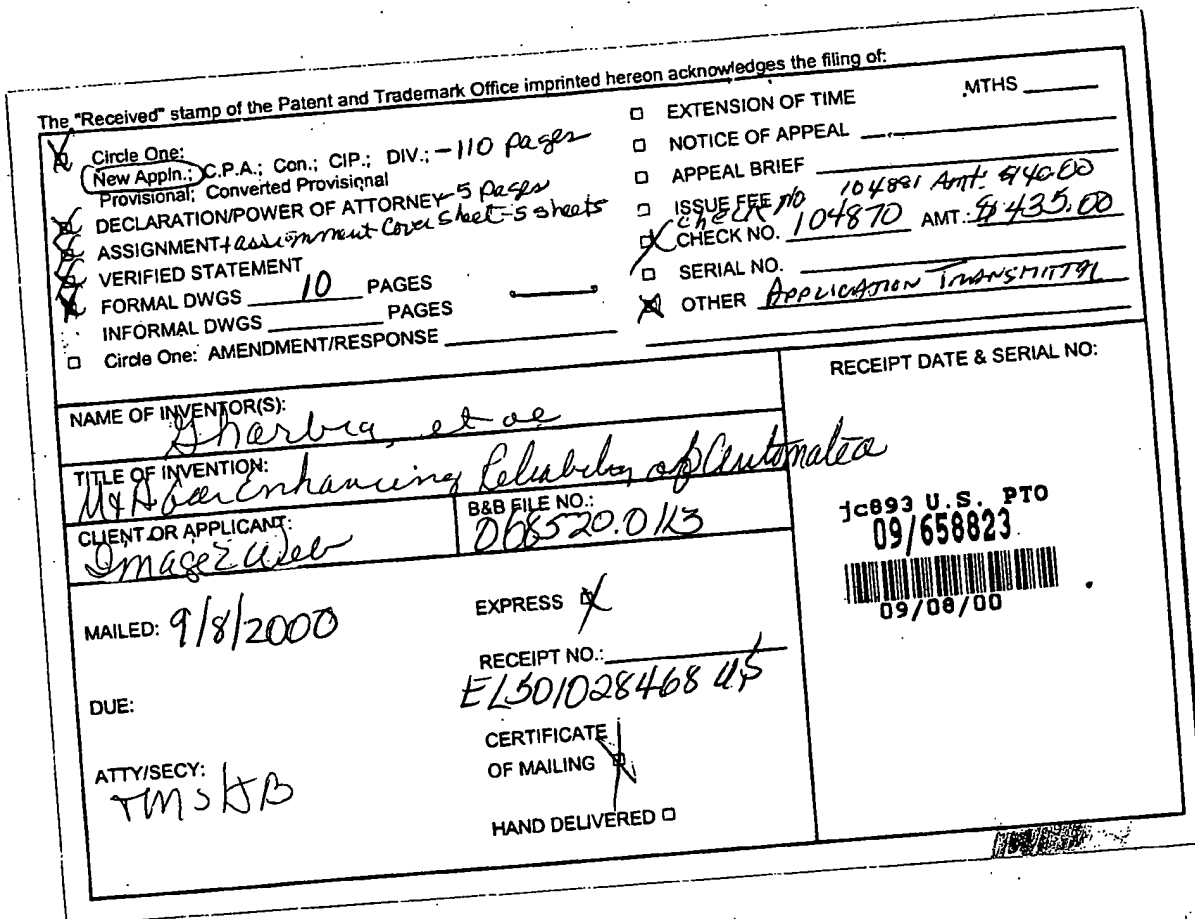 The "Received" stamp of the Patent and Trademark Office imprinted hereon acknowledges the filing of:
Circle One:
New Appln.; C.P.A.; Con.; CIP.; DIV.; - 110 pages
Provisional; Converted Provisional
DECLARATION/POWER OF ATTORNEY - 5 pages
ASSIGNMENT + assignment Cover Sheet - 5 sheets
VERIFIED STATEMENT
FORMAL DWGS 10 PAGES
INFORMAL DWGS PAGES
Circle One: AMENDMENT/RESPONSE
EXTENSION OF TIME MTHS
NOTICE OF APPEAL
APPEAL BRIEF
104881 Amt:
ISSUE FEE
check no
CHECK NO. 104870 AMT.: $435.00
SERIAL NO.
OTHER APPLICATION TRANSMITTAL
NAME OF INVENTOR(S):
Gharbia, et al
TITLE OF INVENTION:
Enhancing Reliability of Automated
CLIENT OR APPLICANT:
Image2Web
B&B FILE NO.:
068520.0113
RECEIPT DATE & SERIAL NO:
jc893 U.S. PTO
09/658823
09/08/00
MAILED: 9/8/2000
DUE:
ATTY/SECY:
EXPRESS
RECEIPT NO.:
EL501028468 US
CERTIFICATE
OF MAILING
HAND DELIVERED